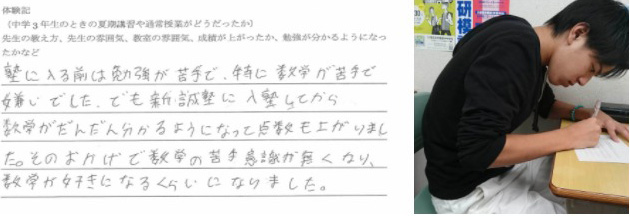 体験記
(中学3年生のときの夏期講習や通常授業がどうだったか)
先生の教え方、先生の雰囲気、教室の雰囲気、成績が上がったか、勉強が分かるようになっ
たかなど
塾に入る前は勉強が苦手で、特に数学が苦手で
嫌いでした。でも新誠塾に入塾してから
数学がだんだん分かるようになって点数も上がりまし
た。そのおかげで数学の苦手意識が無くなり、
数学が好きになるくらいになりました。
研修